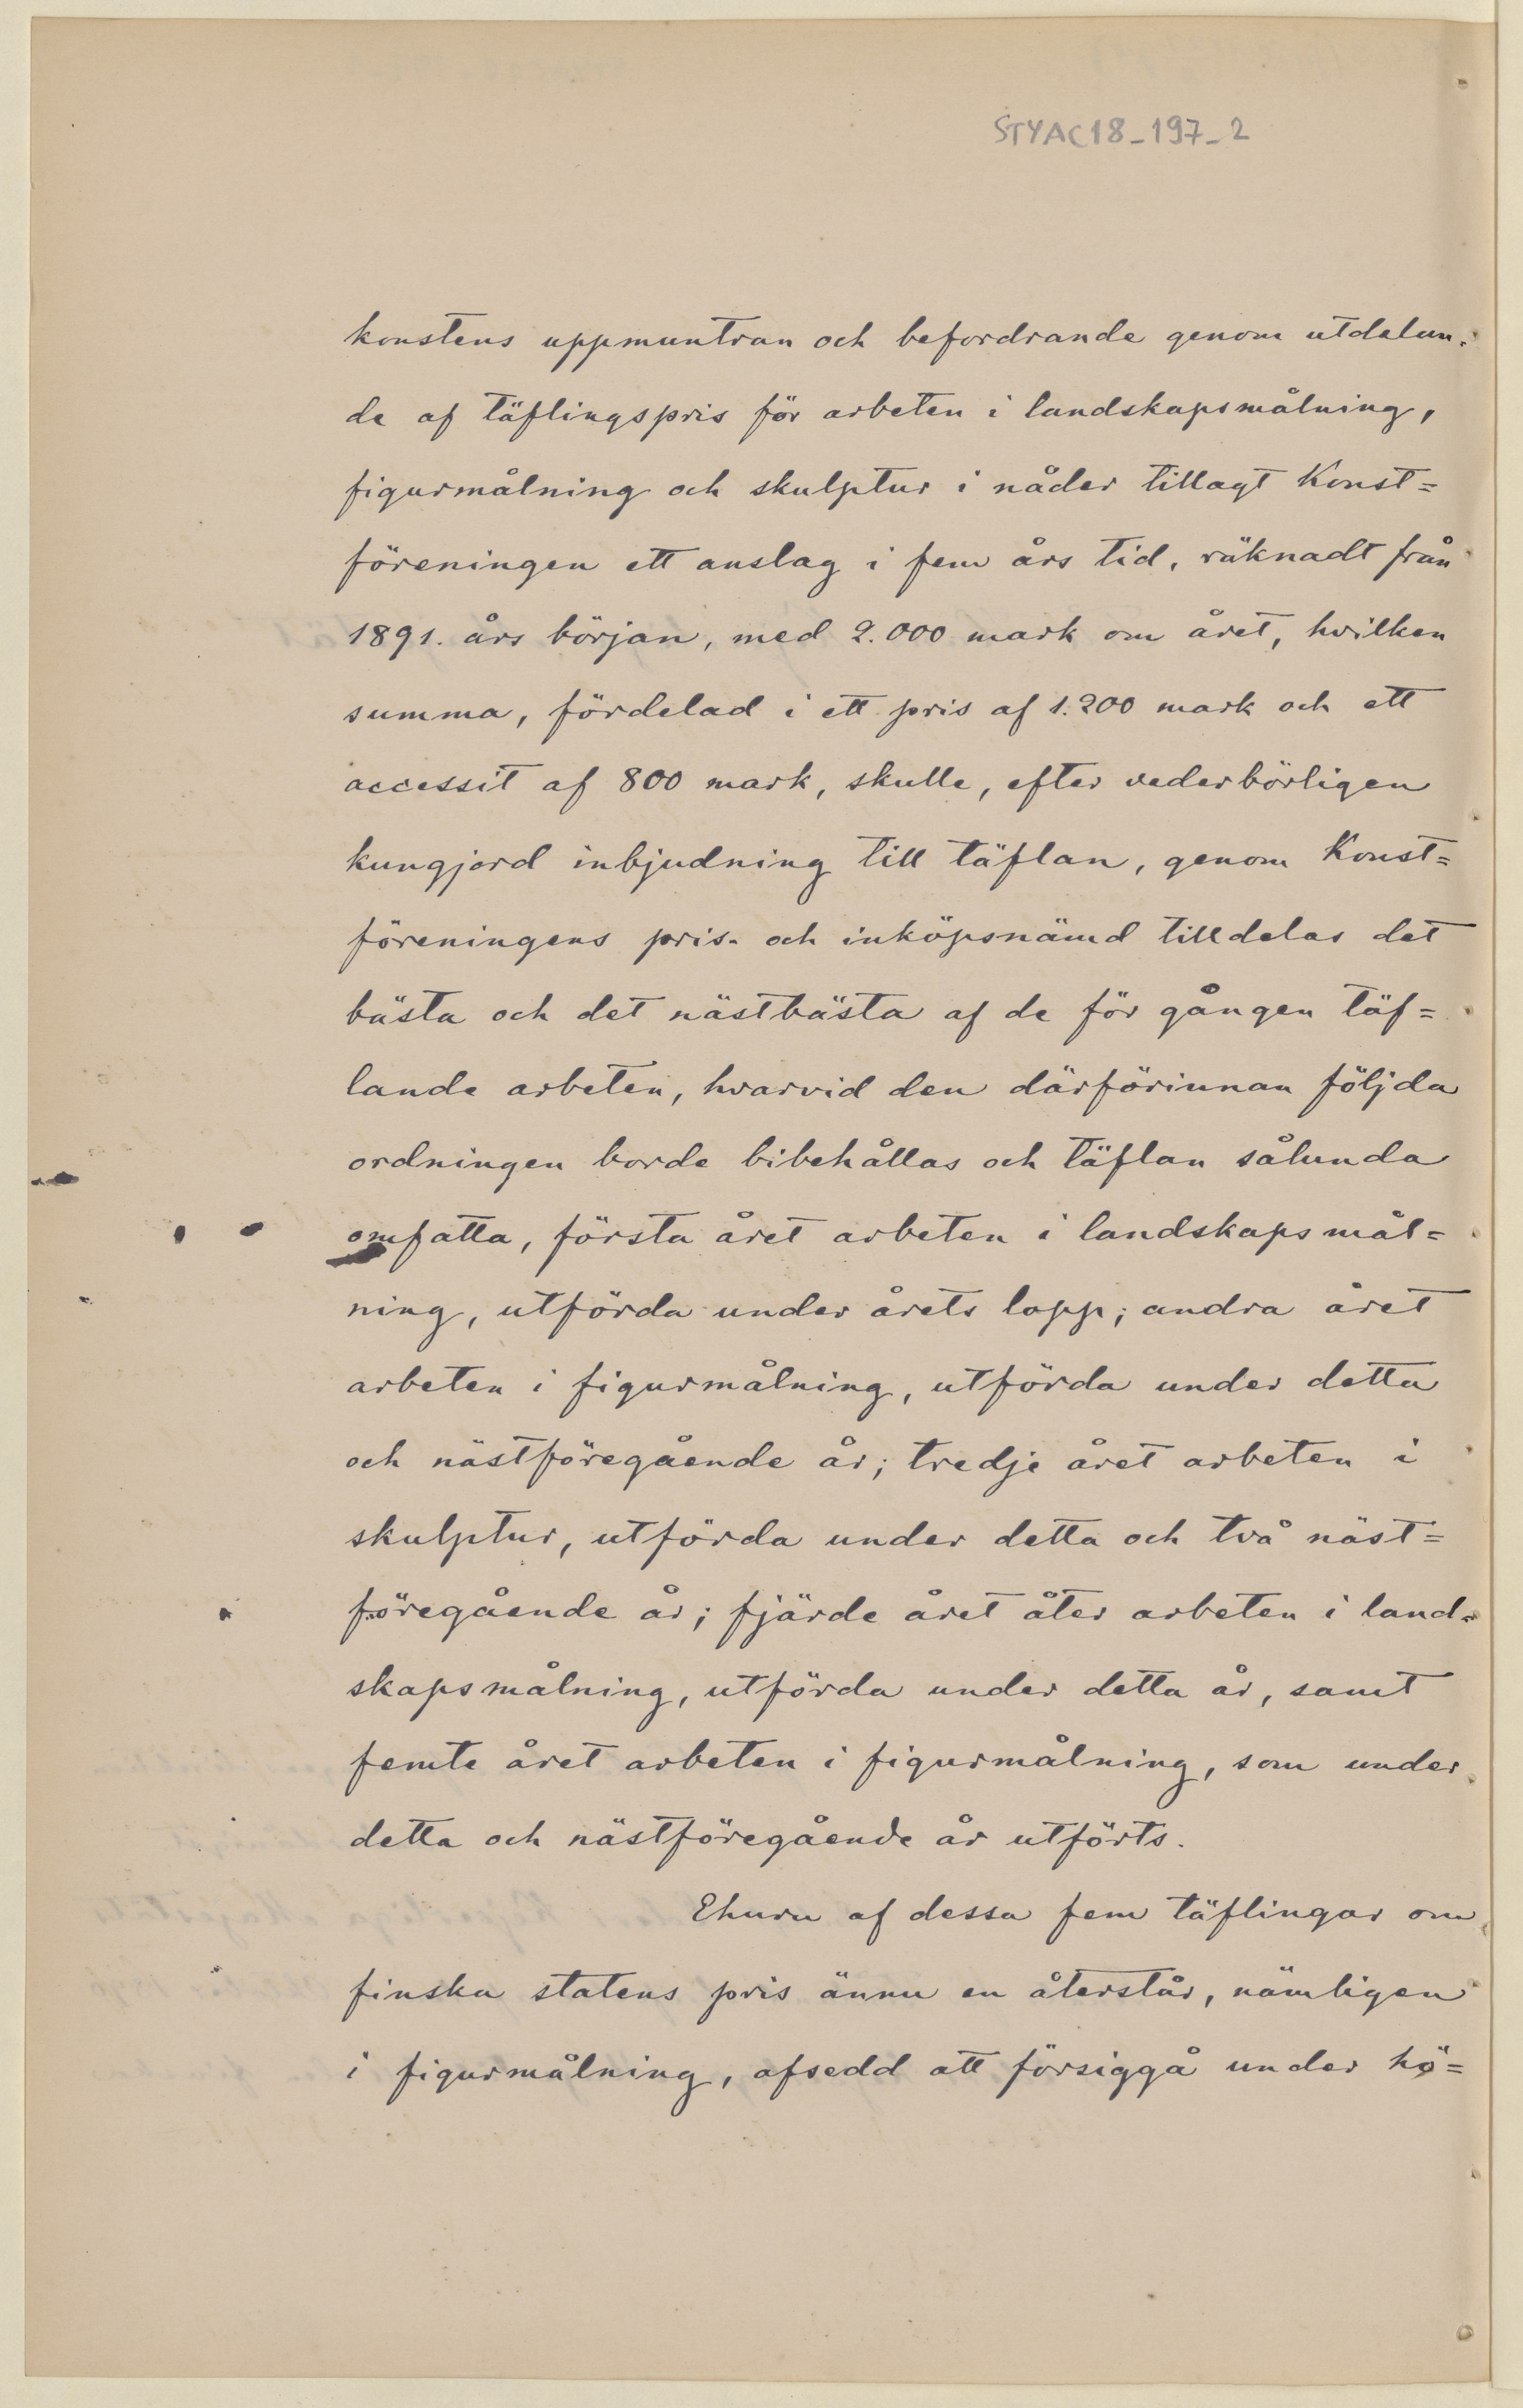 STYAC18_197_2
konstens uppmuntran och befordrande genom utdelan-
de af täflingspris för arbeten i landskapsmålning,
figurmålning och skulptur i nåder tillagt Konst=
föreningen ett anslag i fem års tid, räknadt från
1891. års början, med 2.000 mark om året, hvilken
summa, fördelad i ett pris af 1.200 mark och ett
accessit af 800 mark, skulle, efter vederbörligen
kungjord inbjudning till täflan, genom Konst=
föreningens pris- och inköpsnämd tilldelas det
bästa och det nästbästa af de för gången täf=
lande arbeten, hvarvid den därförinnan följda
ordningen borde bibehållas och täflan sålunda
omfatta, första året arbeten i landskapsmål=
ning, utförda under årets lopp; andra året
arbeten i figurmålning, utförda under detta
och nästföregående år; tredje året arbeten i
skulptur, utförda under detta och två näst=
föregående år; fjärde året åter arbeten i land=
skapsmålning, utförda under detta år, samt
femte året arbeten i figurmålning, som under
detta och nästföregående år utförts.
Ehuru af dessa fem täflingar om
finska statens pris ännu en återstår, nämligen
i figurmålning, afsedd att försiggå under hö=